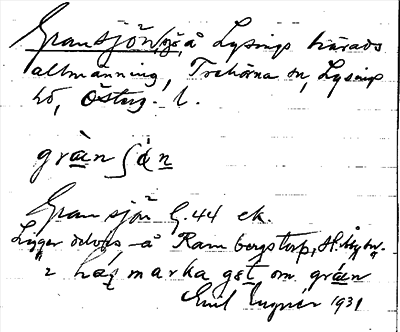 Gransjön, sjö, å Lysings härads
allmänning, Trehörna sn, Lysings
hd, Österg. l.
gràn ʃǿn
Gransjön G.44 ek.
Ligger delvis å Rambergstorp,
marka get om grán
Emil 1931